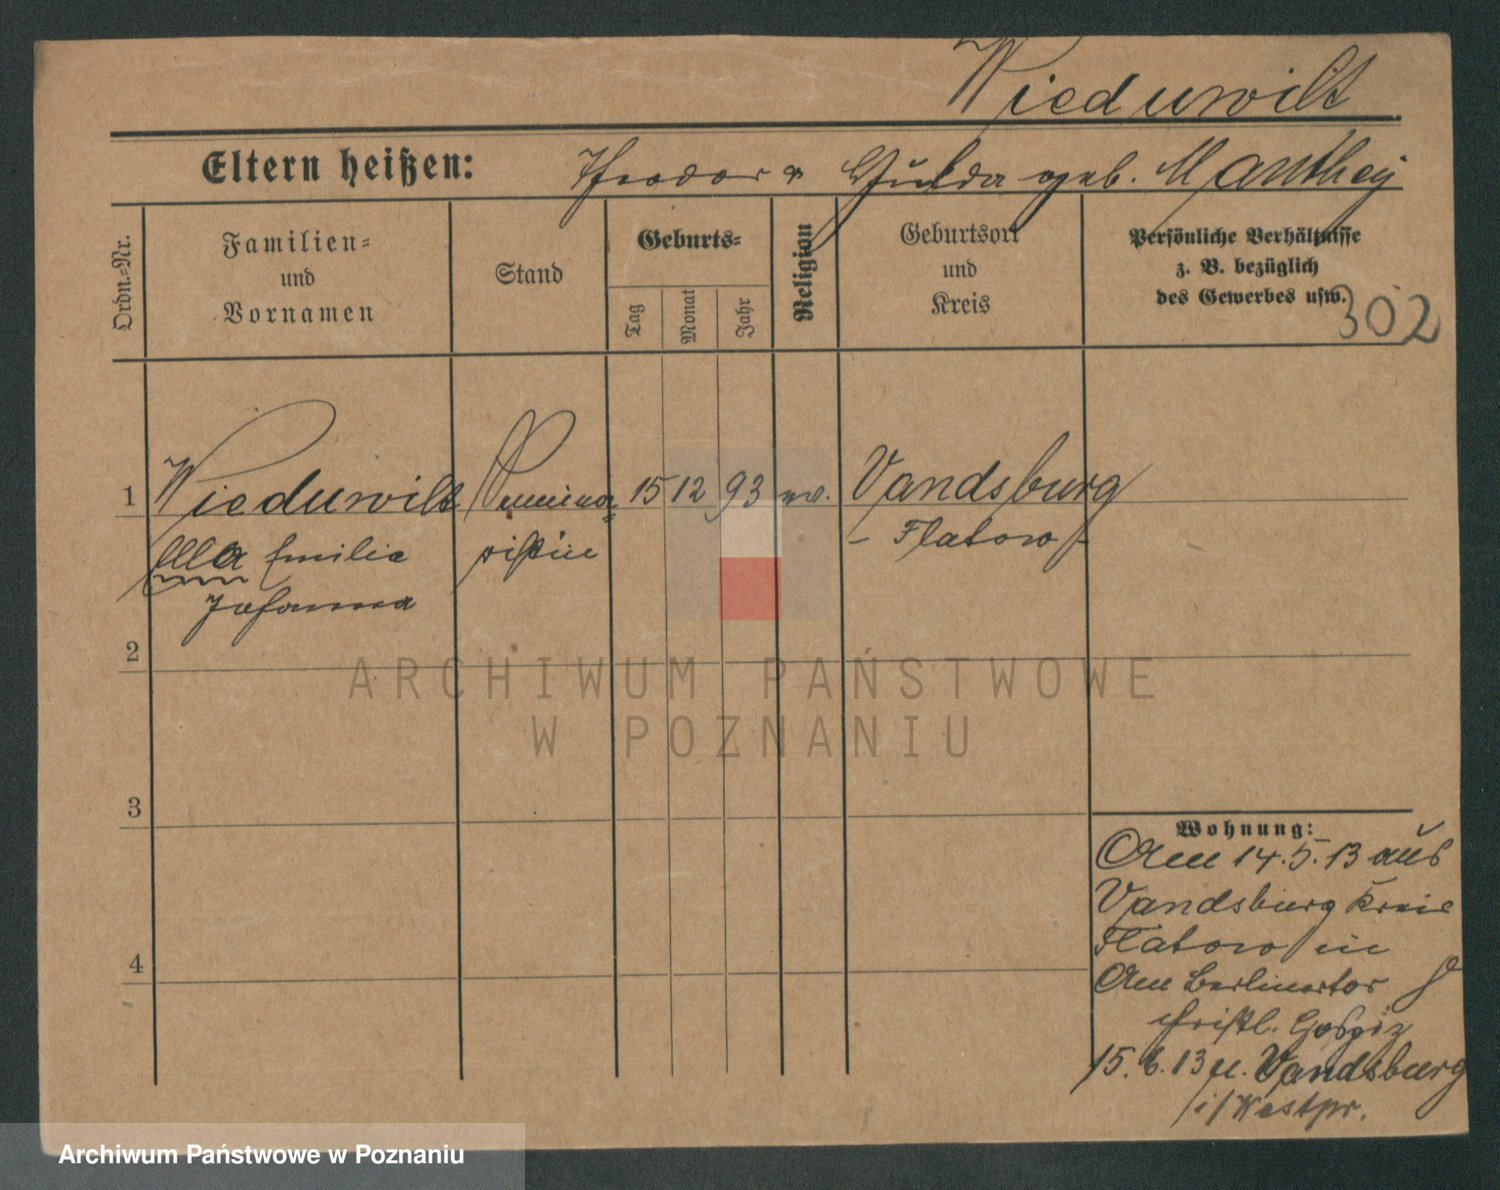 Wieduwilt
Eltern heißen: Theodor u Hulda geb. Manthey
Ordn.-Nr.
Familien-
und
Vornamen
Stand
Geburts-
Tag
Monat
Jahr
Religion
Geburtsort
und
Kreis
Persönliche Verhältnisse
z. B. bezüglich
des Gewerbes usw.
302
1 Wieduwilt Semina= 15 12 93 ev. Vandsburg
Ella Emilie ristin - Flatow -
Johanna
2
3
4
Wohnung:
Am 14.5.13 aus
Vandsburg Kreis
Flatow in
Am Berlinertor 8
christl. Hospiz
15.6.13 n. Vandsburg
i/Westpr.
ARCHIWUM PAŃSTWOWE
W POZNANIU
Archiwum Państwowe w Poznaniu